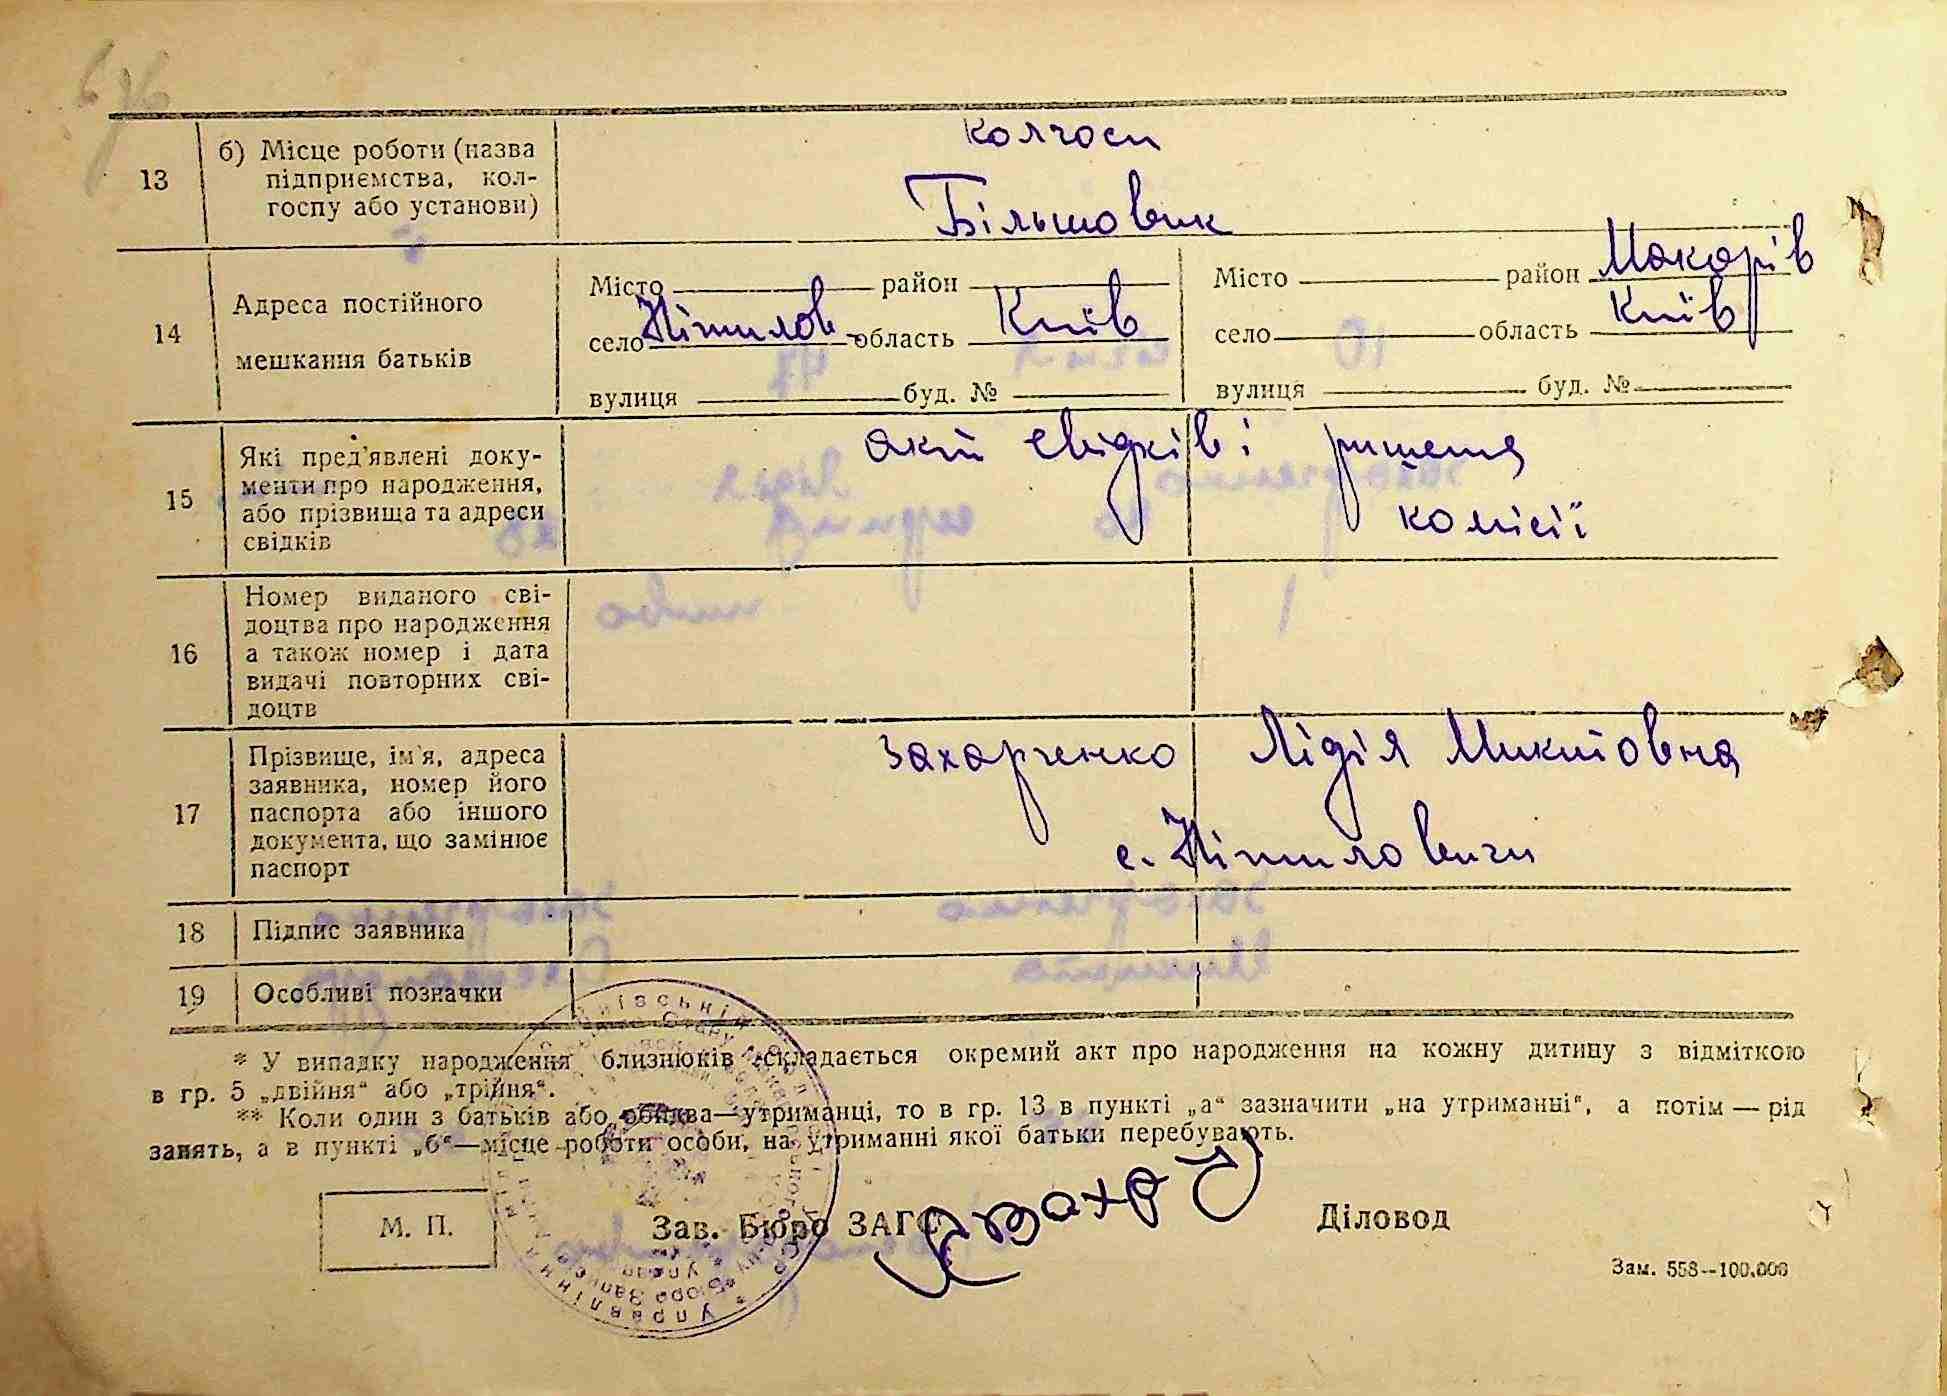 колгосп
13 б) Місце роботи (назва
підприємства, кол-
госпу або установи)
Більшовик
14 Адреса постійного
мешкання батьків
Місто район Місто район Макарів
село Ніжилов область Київ село область Київ
вулиця буд. № вулиця буд. №
15 Які пред'явлені доку-
менти про народження,
або прізвища та адреси
свідків
акт свідків і ришення
комісії
16 Номер виданого сві-
доцтва про народження
а також номер і дата
видачі повторних сві-
доцтв
17 Прізвище, ім'я, адреса
заявника, номер його
паспорта або іншого
документа, що замінює
паспорт
Захарченко Лідія Микитовна
с. Ніжиловичи
18 Підпис заявника
19 Особливі позначки
* У випадку народження близнюків складається окремий акт про народження на кожну дитину з відміткою
в гр. 5 „двійня“ або „трійня“.
** Коли один з батьків або обидва—утриманці, то в гр. 13 в пункті „а“ зазначити „на утриманні“, а потім — рід
занять, а в пункті „б“—місце роботи особи, на утриманні якої батьки перебувають.
М. П. Зав. Бюро ЗАГС Діловод
Зам. 558--100.000